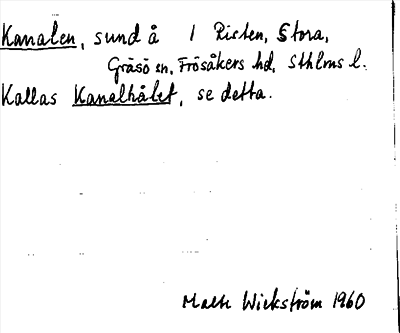 Kanalen, sund å 1 Risten, Stora,
Gräsö sn, Frösåkers hd, Sthlms l.
Kallas Kanalhålet, se detta.
Malte Wickström 1960